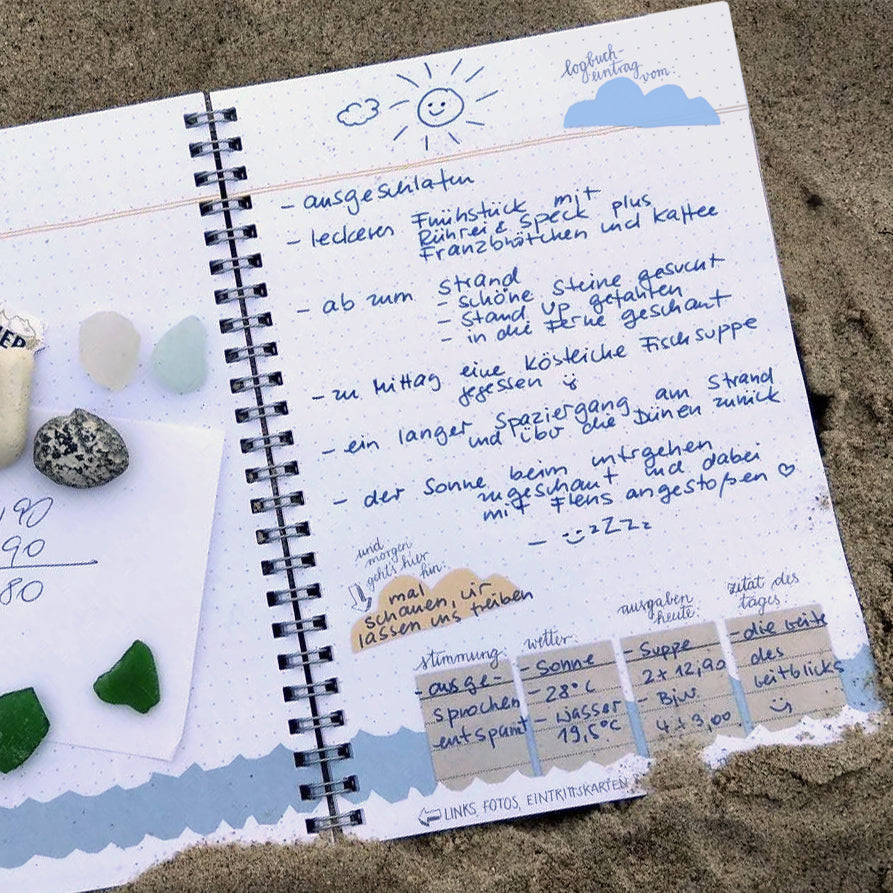 logbuch-
eintrag vom:
- ausgeschlafen
- leckeres Frühstück mit
Rührei & Speck plus
Franzbrötchen und Kaffee
- ab zum Strand
- schöne Steine gesucht
- Stand Up gefahren
- in die Ferne geschaut
- zu Mittag eine köstliche Fischsuppe
gegessen
- ein langer Spaziergang am Strand
und über die Dünen zurück
- der Sonne beim untrgehen
zugeschaut und dabei
mit Flens angestoßen ♡
- zZZz
und
morgen
geht's hier
hin:
mal
schauen, wir
lassen uns treiben
stimmung:
- ausge-
sprochen
entspannt
wetter:
- Sonne
- 28°C
- Wasser
19,5°C
ausgaben
heute:
- Suppe
2 x 12,90
- Bier
4 x 3,00
zitat des
tages:
- die Weite
des
Weitblicks
LINKS, FOTOS, EINTRITTSKARTEN
,90
90
80